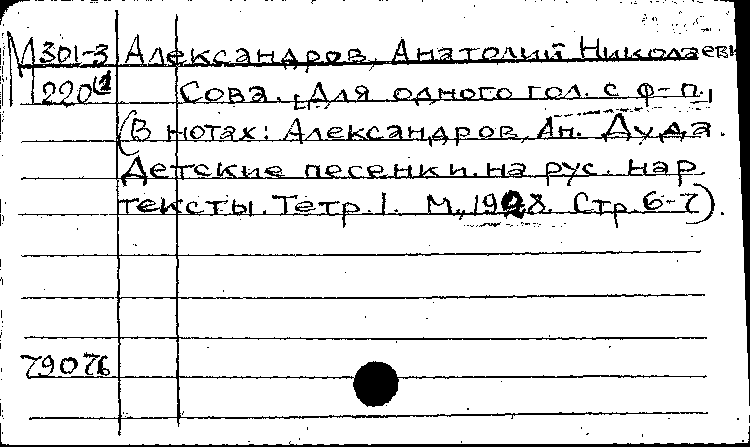 М 301-3 Александров, Анатолий Николаеви
220 Сова. [Для одного гол. с ф-п.]
(В нотах: Александров, Ан. Дуда.
Детские песенки на рус. нар.
тексты. Тетр. 1. М., 1928. Стр. 6-7).
79076